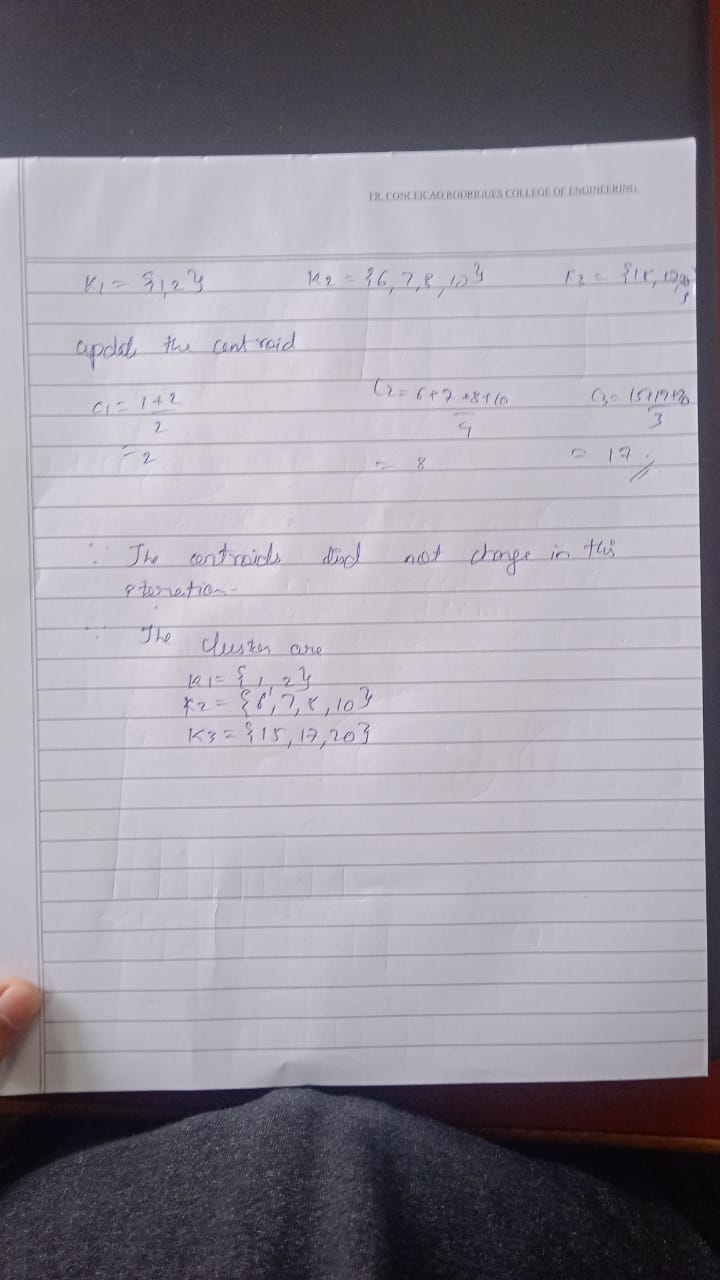 FR. CONCEICAO RODRIGUES COLLEGE OF ENGINEERING
K1 = {1,2} K2 = {6,7,8,10} K3 = {15,17,20}
update the centroid
C1 = 1+2 / 2 C2 = 6+7+8+10 / 4 C3 = 15+17+20 / 3
= 2 = 8 = 17
∴ The centroids did not change in this
iteration.
∴ The cluster are
K1 = {1,2}
K2 = {6,7,8,10}
K3 = {15,17,20}